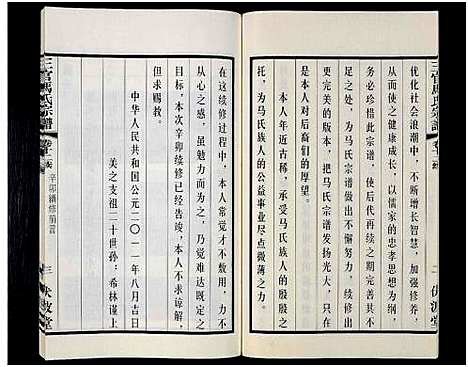 三官馬氏宗譜
卷十二
二
伏波堂
优化社会浪潮中，不断增长智慧，加强修养，
从而使之健康成长，以儒家的忠孝思想为纲，
务必珍惜此宗谱，使后代再续之期完善其不
足之处。为马氏宗谱做出不懈努力。续出比本
更完善的版本，为使马氏宗谱发扬光大，只在
此后裔们的厚望。
本人年近古稀，承受马氏族人的殷殷之
托，为马氏族人的公益事业尽点微薄之力。
在这续修过程中，本人常觉才不敷用，力不
从心之感，虽勇而为之，乃觉难达既定之
目的。本次辛卯续修已经告竣，本人不求谅解，
但求赐教。
中华人民共和国公元二〇一一年八月吉日
美之支祖二十世孙：希林谨上
三官馬氏宗譜
卷十二
辛卯續修前言
三
伏波堂